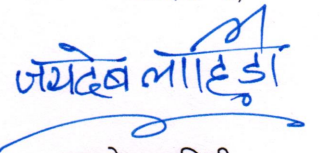 जयदेब लाहिडी